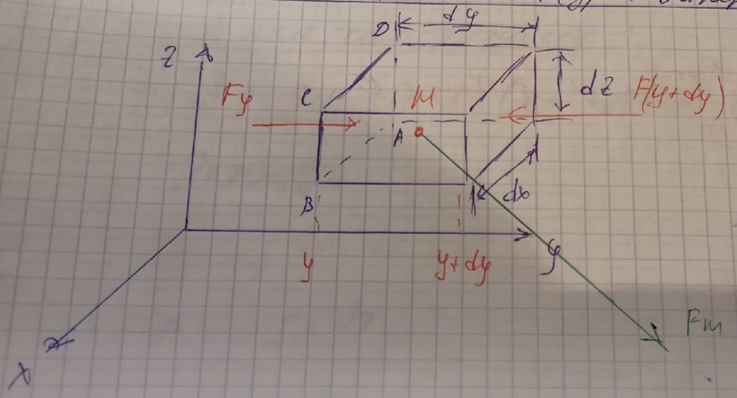 D
dy
z
Fy
C
M
dz
F(y+dy)
A
B
dx
y
y+dy
y
Fm
x